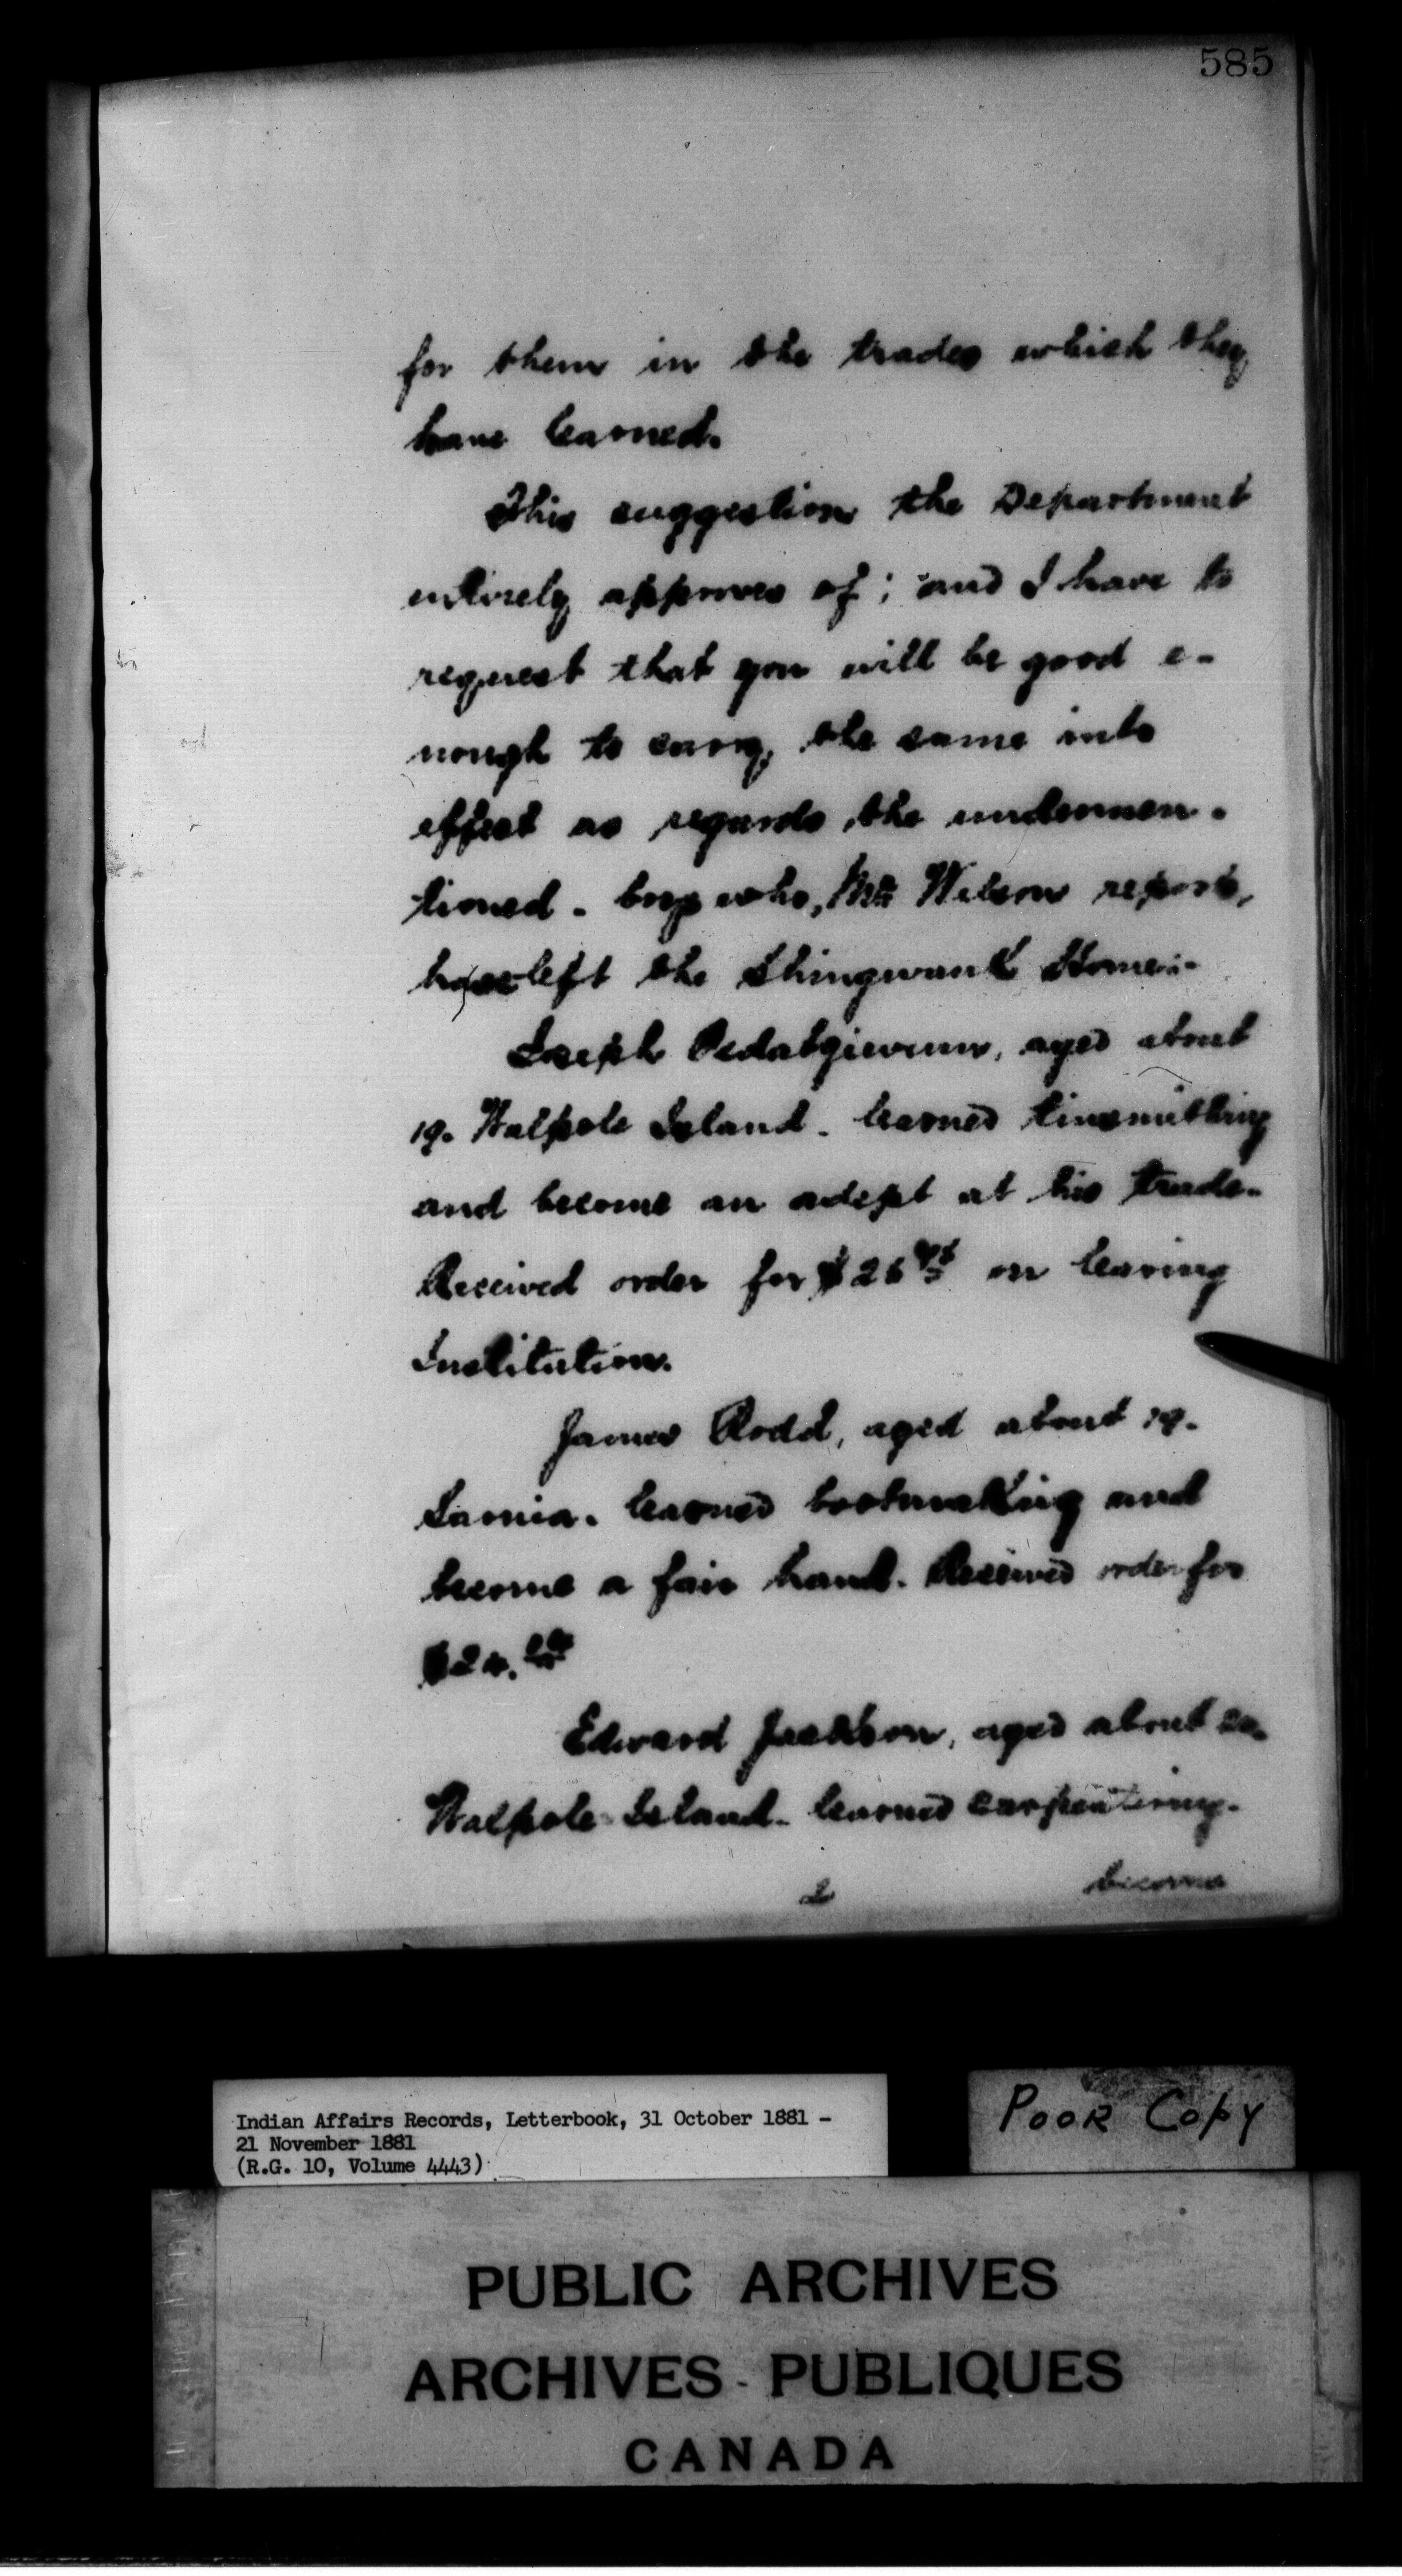 585
for them in the trades which they
have learned.
This suggestion the Department
entirely approves of; and I have to
request that you will be good e-
nough to carry the same into
effect as regards the undermen-
tioned boys who, Mr Wilson reports,
have left the Shingwauk Home:-
Joseph aged about
19. Walpole Island. learned tinsmithing
and become an adept at his trade.
Received order for $26 on leaving
Institution.
James Rodd, aged about 19.
Sarnia. learned bootmaking and
become a fair hand. Received order for
$24.
Edward Jackson, aged about
Walpole Island. learned carpentering.
2 become
Indian Affairs Records, Letterbook, 31 October 1881 -
21 November 1881
(R.G. 10, Volume 4443)
POOR COPY
PUBLIC ARCHIVES
ARCHIVES - PUBLIQUES
CANADA